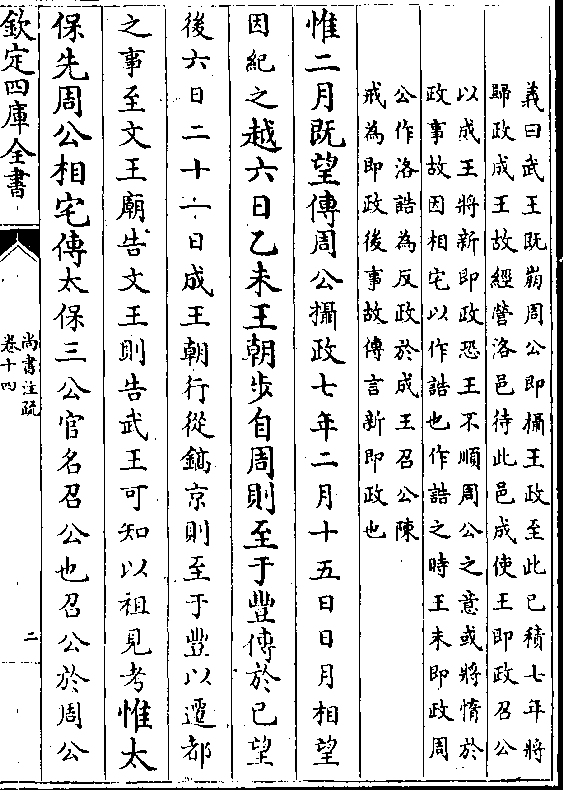 義曰武王既崩周公即攝王政至此已積七年將
歸政成王故經營洛邑待此邑成使王即政召公
以成王將新即政恐王不順周公之意或將惰於
政事故因相宅以作誥也作誥之時王未即政周
公作洛誥為反政於成王召公陳
戒為即政後事故傳言新即政也
惟二月既望傳周公攝政七年二月十五日日月相望
因紀之越六日乙未王朝步自周則至于豐傳於已望
後六日二十一日成王朝行從鎬京則至于豐以遷都
之事至文王廟告文王則告武王可知以祖見考惟太
保先周公相宅傳太保三公官名召公也召公於周公
欽定四庫全書
尚書注疏
卷十四
二